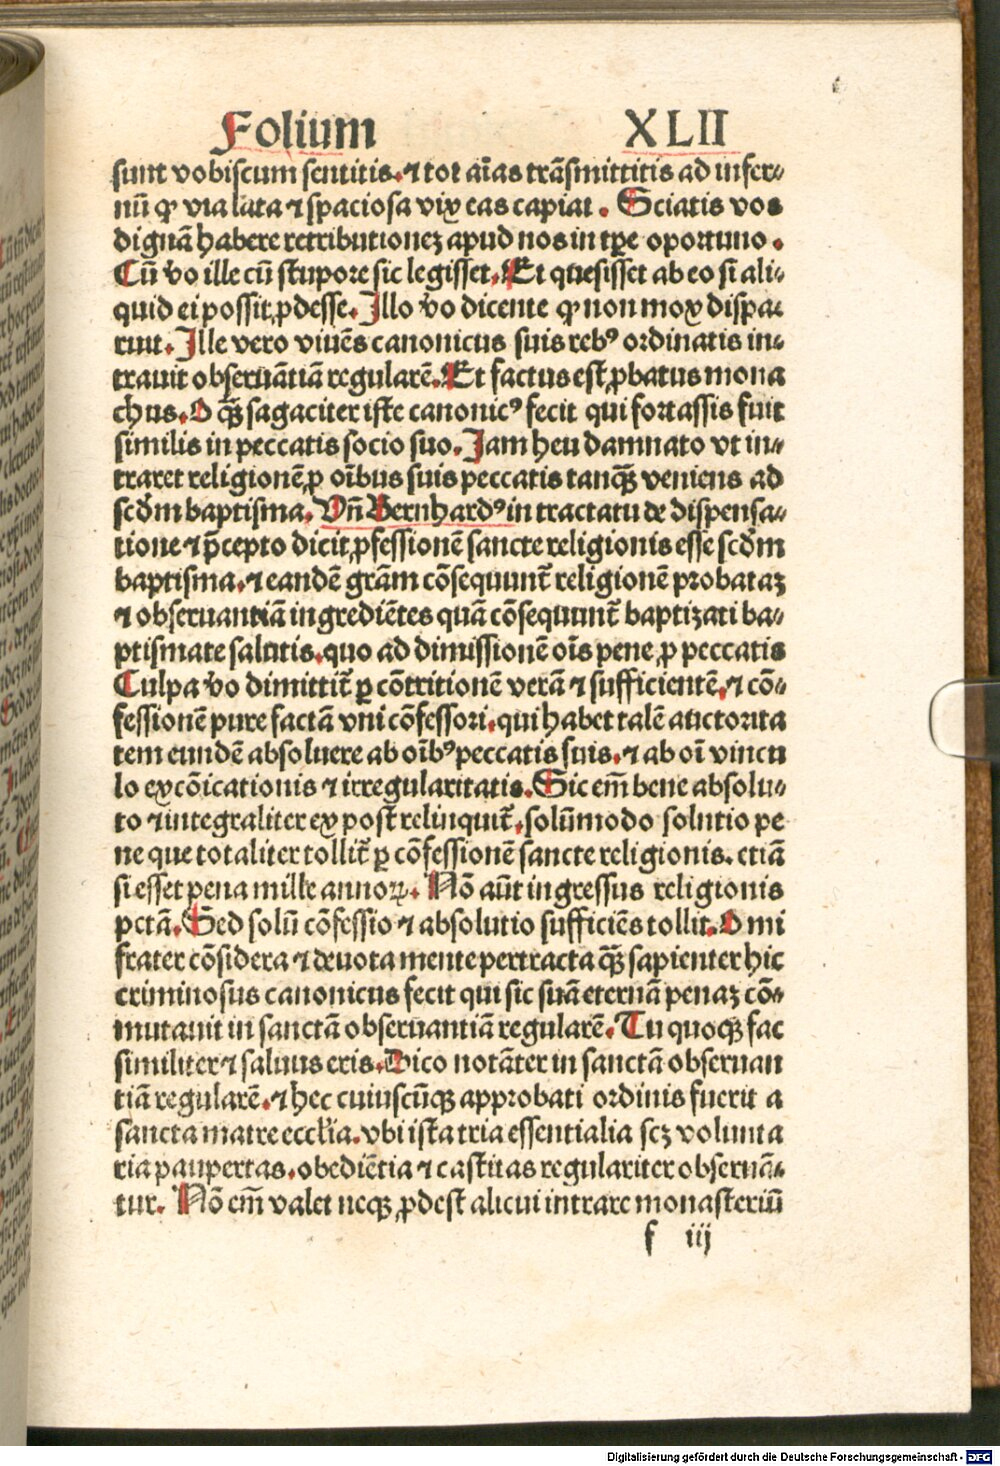 Folium XLII
sunt vobiscum sentitis. ⁊ tot aīas trāsmittitis ad infer⸗
nū ꝙ via lata ⁊ spaciosa vix eas capiat. Sciatis vos
dignā habere retributioneʒ apud nos in tꝑe oportuno.
Cū v̄o ille cū stupore sic legisset. Et quesisset ab eo si ali⸗
quid ei possit ꝓdesse. Illo v̄o dicente ꝙ non mox dispa⸗
ruit. Ille vero viuēs canonicus suis rebꝰ ordinatis in⸗
trauit obseruātiā regularē. Et factus est ꝓbatus mona
chus. O ꝙ̄ sagaciter iste canonicꝰ fecit qui fortassis fuit
similis in peccatis socio suo. Jam heu damnato vt in⸗
traret religionē ꝓ oībus suis peccatis tanꝙ̄ veniens ad
scd̄m baptisma. Vn̄ Bernhardꝰ in tractatu de dispensa⸗
tione ⁊ p̄cepto dicit ꝓfessionē sancte religionis esse scd̄m
baptisma. ⁊ eandē gr̄am cōsequunt̄ religionē probataʒ
⁊ obseruantiā ingrediētes quā cōsequunt̄ baptizati ba⸗
ptismate salutis. quo ad dimissionē oīs pene ꝓ peccatis
Culpa v̄o dimittit̄ ꝑ cōtritionē verā ⁊ sufficientē. ⁊ cō⸗
fessionē pure factā vni cōfessori. qui habet talē auctorita
tem eundē absoluere ab oībꝰ peccatis suis. ⁊ ab oī vincu
lo excōicationis ⁊ irregularitatis. Sic em̄ bene absolu⸗
to ⁊ integraliter ex post relinquit̄. solūmodo solutio pe
ne que totaliter tollit̄ ꝑ cōfessionē sancte religionis. etiā
si esset pena mille annoꝝ. Nō aūt ingressus religionis
pctā. Sed solū cōfessio ⁊ absolutio sufficiēs tollit. O mi
frater cōsidera ⁊ deuota mente pertracta ꝙ̄ sapienter hic
criminosus canonicus fecit qui sic suā eternā penaʒ cō⸗
mutauit in sanctā obseruantiā regularē. Tu quoqʒ fac
similiter ⁊ saluus eris. Dico notāter in sanctā obseruan
tiā regularē. ⁊ hec cuiuscūqʒ approbati ordinis fuerit a
sancta matre eccl̄ia. vbi ista tria essentialia scʒ volunta
ria paupertas. obediētia ⁊ castitas regulariter obseruā⸗
tur. Nō em̄ valet neqʒ ꝓdest alicui intrare monasteriū
f iij
Digitalisierung gefördert durch die Deutsche Forschungsgemeinschaft - DFG